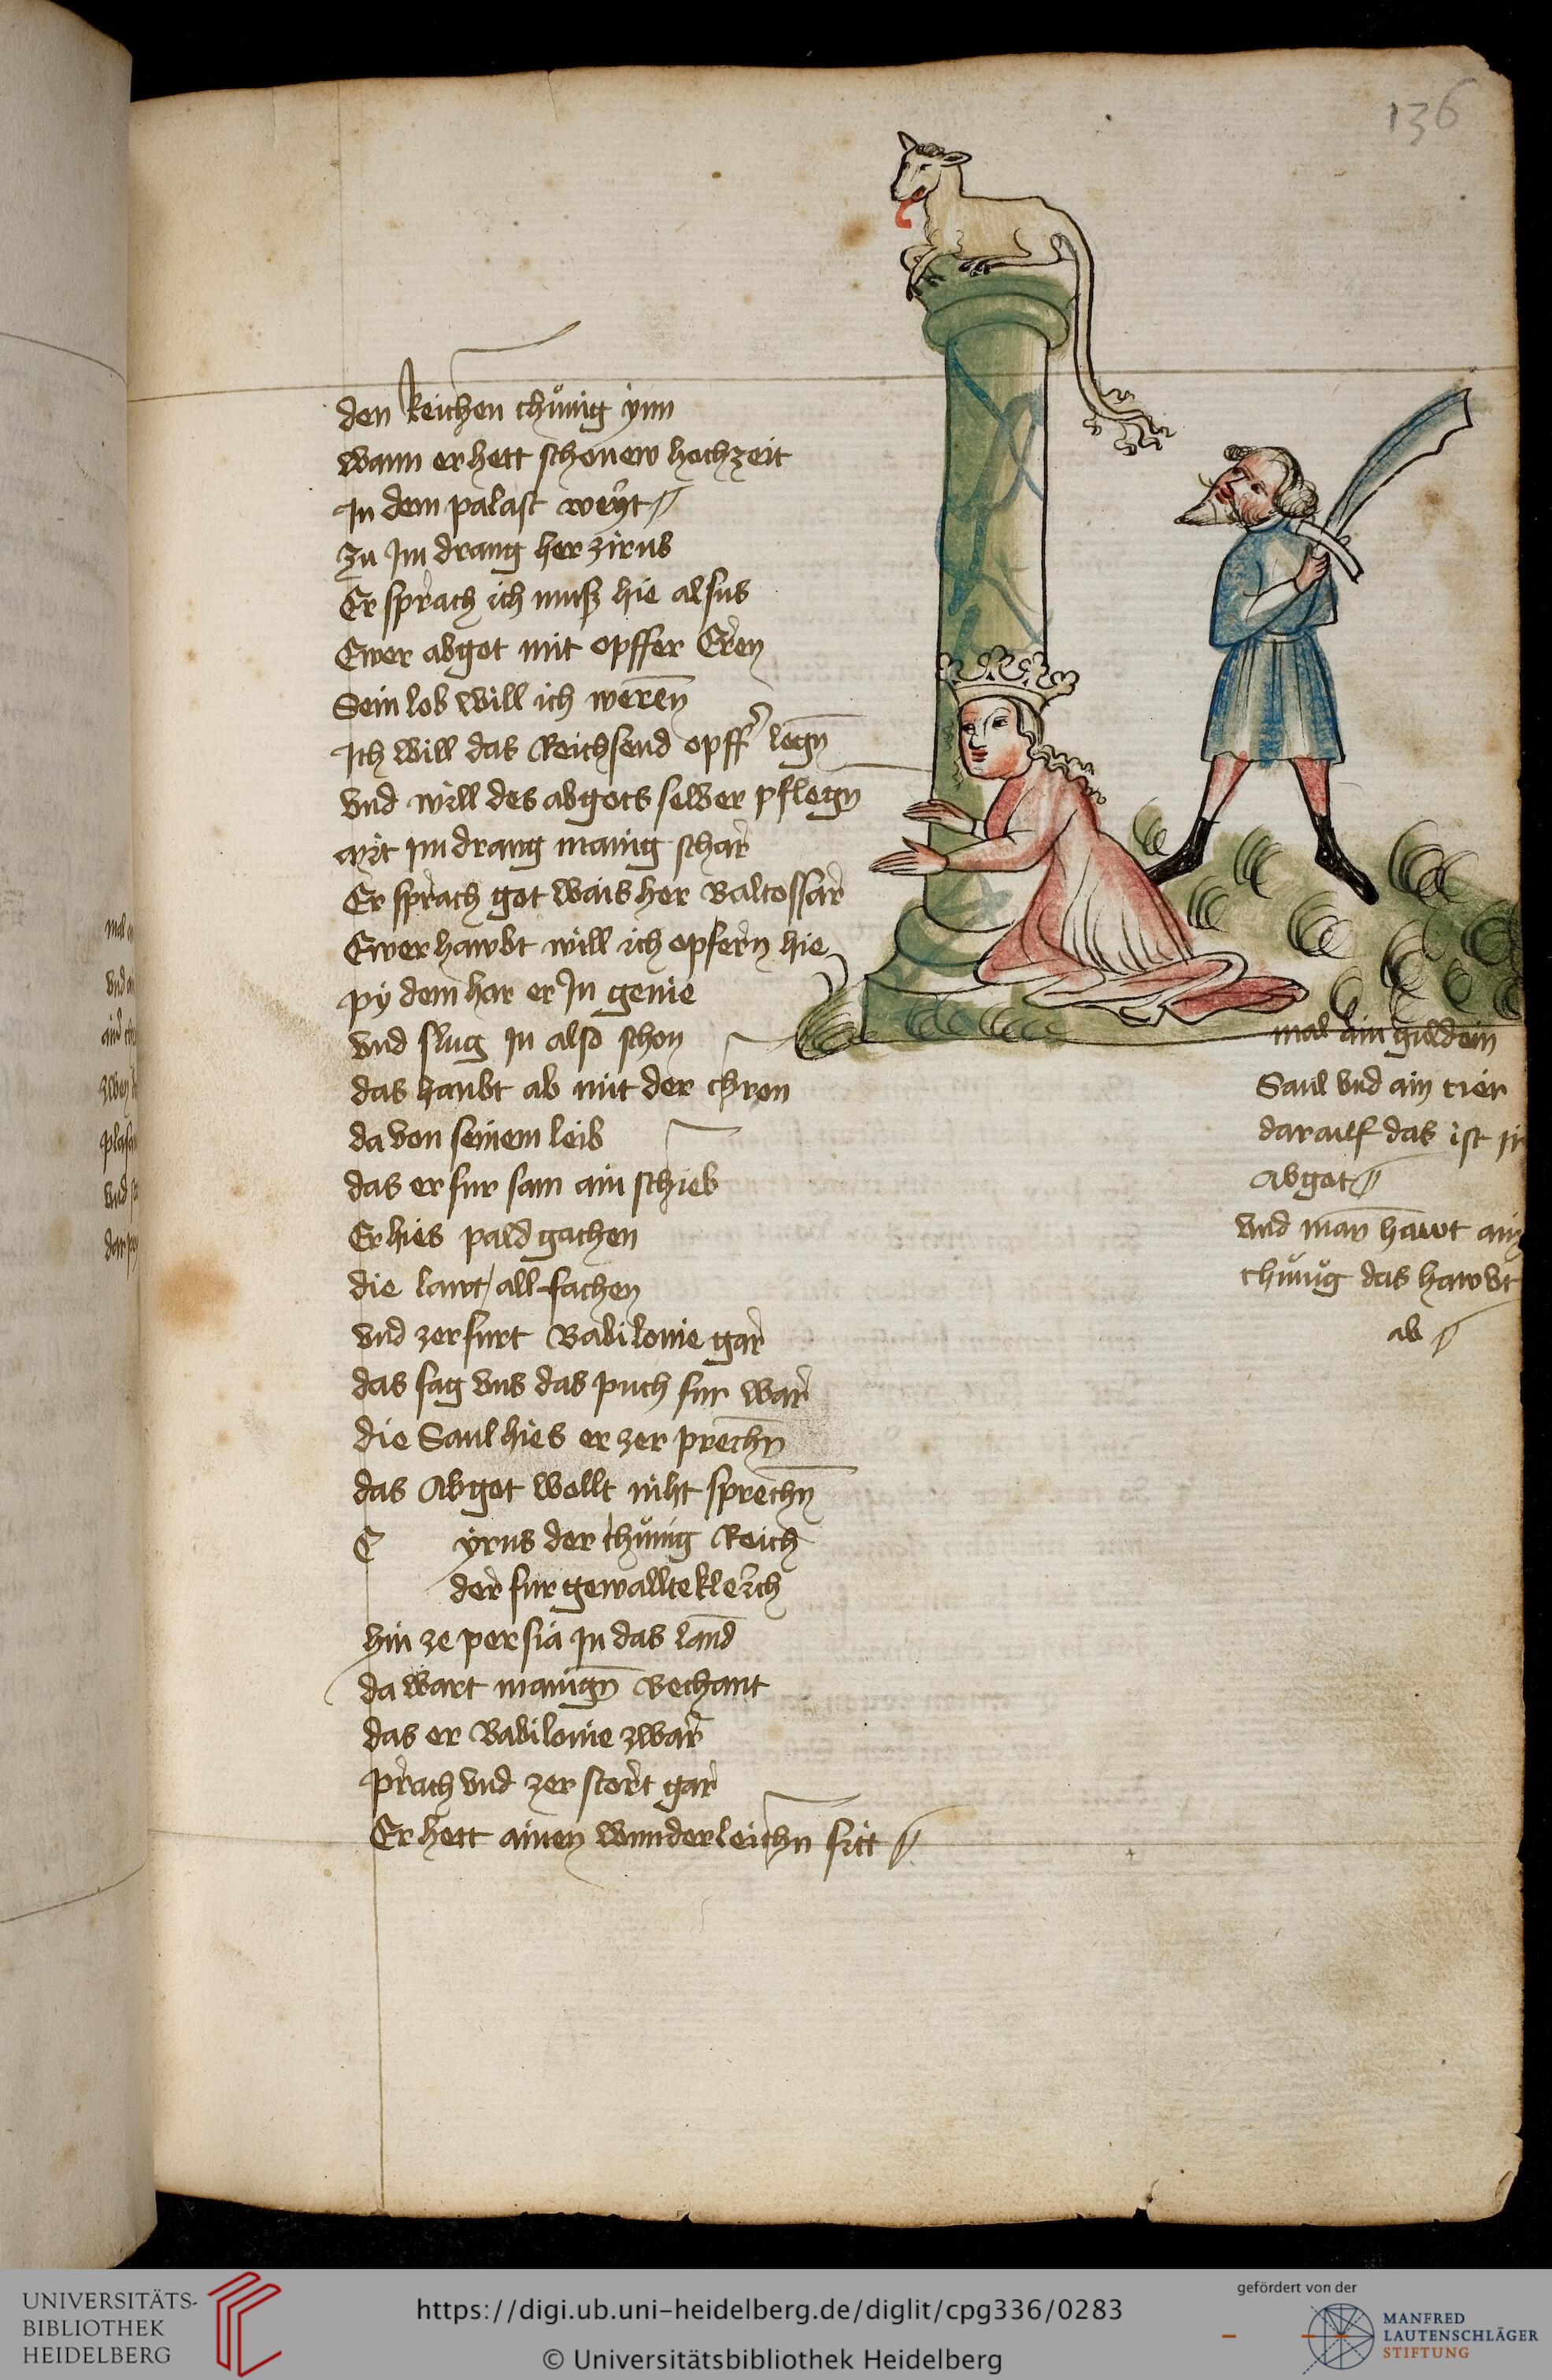 136
den Reichen chůnig ynn
wann er hett schonew hochzeit
In dem palast weyt
zu Im drang her zirus
Er sprach ich muss hie alsus
Ewer abgot mit opffer Eren
Sein lob will ich weren̄
Ich will das Reichsend opff̉ legn̄
vnd will des abgots selber pflegn
mit Im drang manig schar
Er sprach got wais her Baltossar
Ewer hawbt will ich opfern hie
py dem har er In genie
vnd slug In also schon
das haubt ab mit der chron
da von seinem leib
das er fur sam ain schieb
Er hies pald gachen
die lawt all fachen
vnd zerfurt Babilonie gar
das sag vns das puch fur war
die Saul hies er zer prechn̄
das Abgot wollt niht sprechn̄
C yrus der chůnig Reich
der fur gewalltekleich
hin ze persia In das land
da wart manign̄ bechant
das er Babilonie zwar
prach vnd zer stort gar
Er hett ainen wunderleichn̄ sitt
mal ain guldein
Saul vnd ain tier
darauf das ist ir
Abgot
vnd man hawt ain
chůnig das hawbt
ab
UNIVERSITÄTS-
BIBLIOTHEK
HEIDELBERG
https://digi.ub.uni-heidelberg.de/diglit/cpg336/0283
© Universitätsbibliothek Heidelberg
gefördert von der
MANFRED
LAUTENSCHLÄGER
STIFTUNG